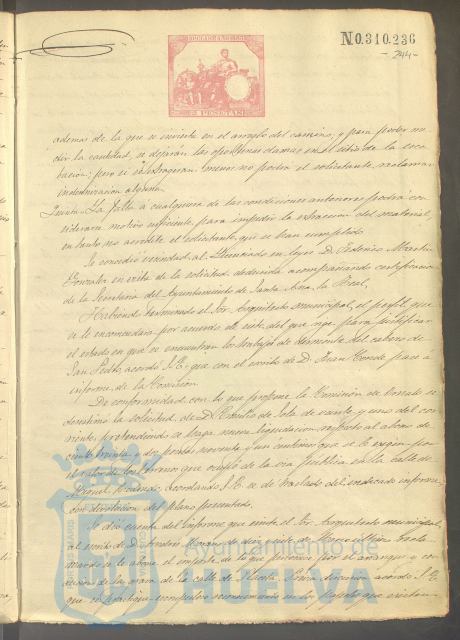 DECLARE AÑO 1881
N0.310.236
- 244 -
2 PESETAS
ademas de la que se invierta en el arreglo del camino, y para poder me
dir la cantidad, se dejarán las oportunas damas en el sitio de la esca
bacion; pero si se estragesen menos no podrá el solicitante reclamar
indemnizacion alguna.
Quinta. La falta á cualquiera de las condiciones anteriores podrá con
siderarse motivo suficiente para impedir la estraccion del material,
en tanto no acredite el solicitante que se han cumplido.
Se concedió vecindad al Licenciado en leyes D. Federico
Gonzalez en vista de la solicitud deducida acompañando certificacion
de la Secretaria del Ayuntamiento de Santa Ana, la Real.
Habiendo terminado el Sor. Arquitecto municipal, el perfil que
se le encomendara por acuerdo de siete del que rige para justificar
el estado en que se encuentran los trabajos de desmonte del cabezo de
San Pedro, acordó S.E. que con el escrito de D. Juan Conde pase á
informe de la Comision.
De conformidad con lo que propone la Comision de Ornato se
desestimó la solicitud de D. de Sola de veinte y uno del cor
riente, pretendiendo se haga nueva liquidacion respecto al abono de
ciento treinta y dos pesetas noventa y un centimos que se le exigen por
el valor de los terrenos que ocupó de la via pública en la calle de
acordando S.E. se dé traslado del indicado informe
con devolucion del plano presentado.
Se dió cuenta del informe que emite el Sor. Arquitecto municipal,
al escrito de D. Moreno de diez y siete de
mando se le abone el importe de lo que por el arranque y con
duccion de la de la calle de acordó S.E.
que se practique reconocimiento en los
Ayuntamiento de
HUELVA